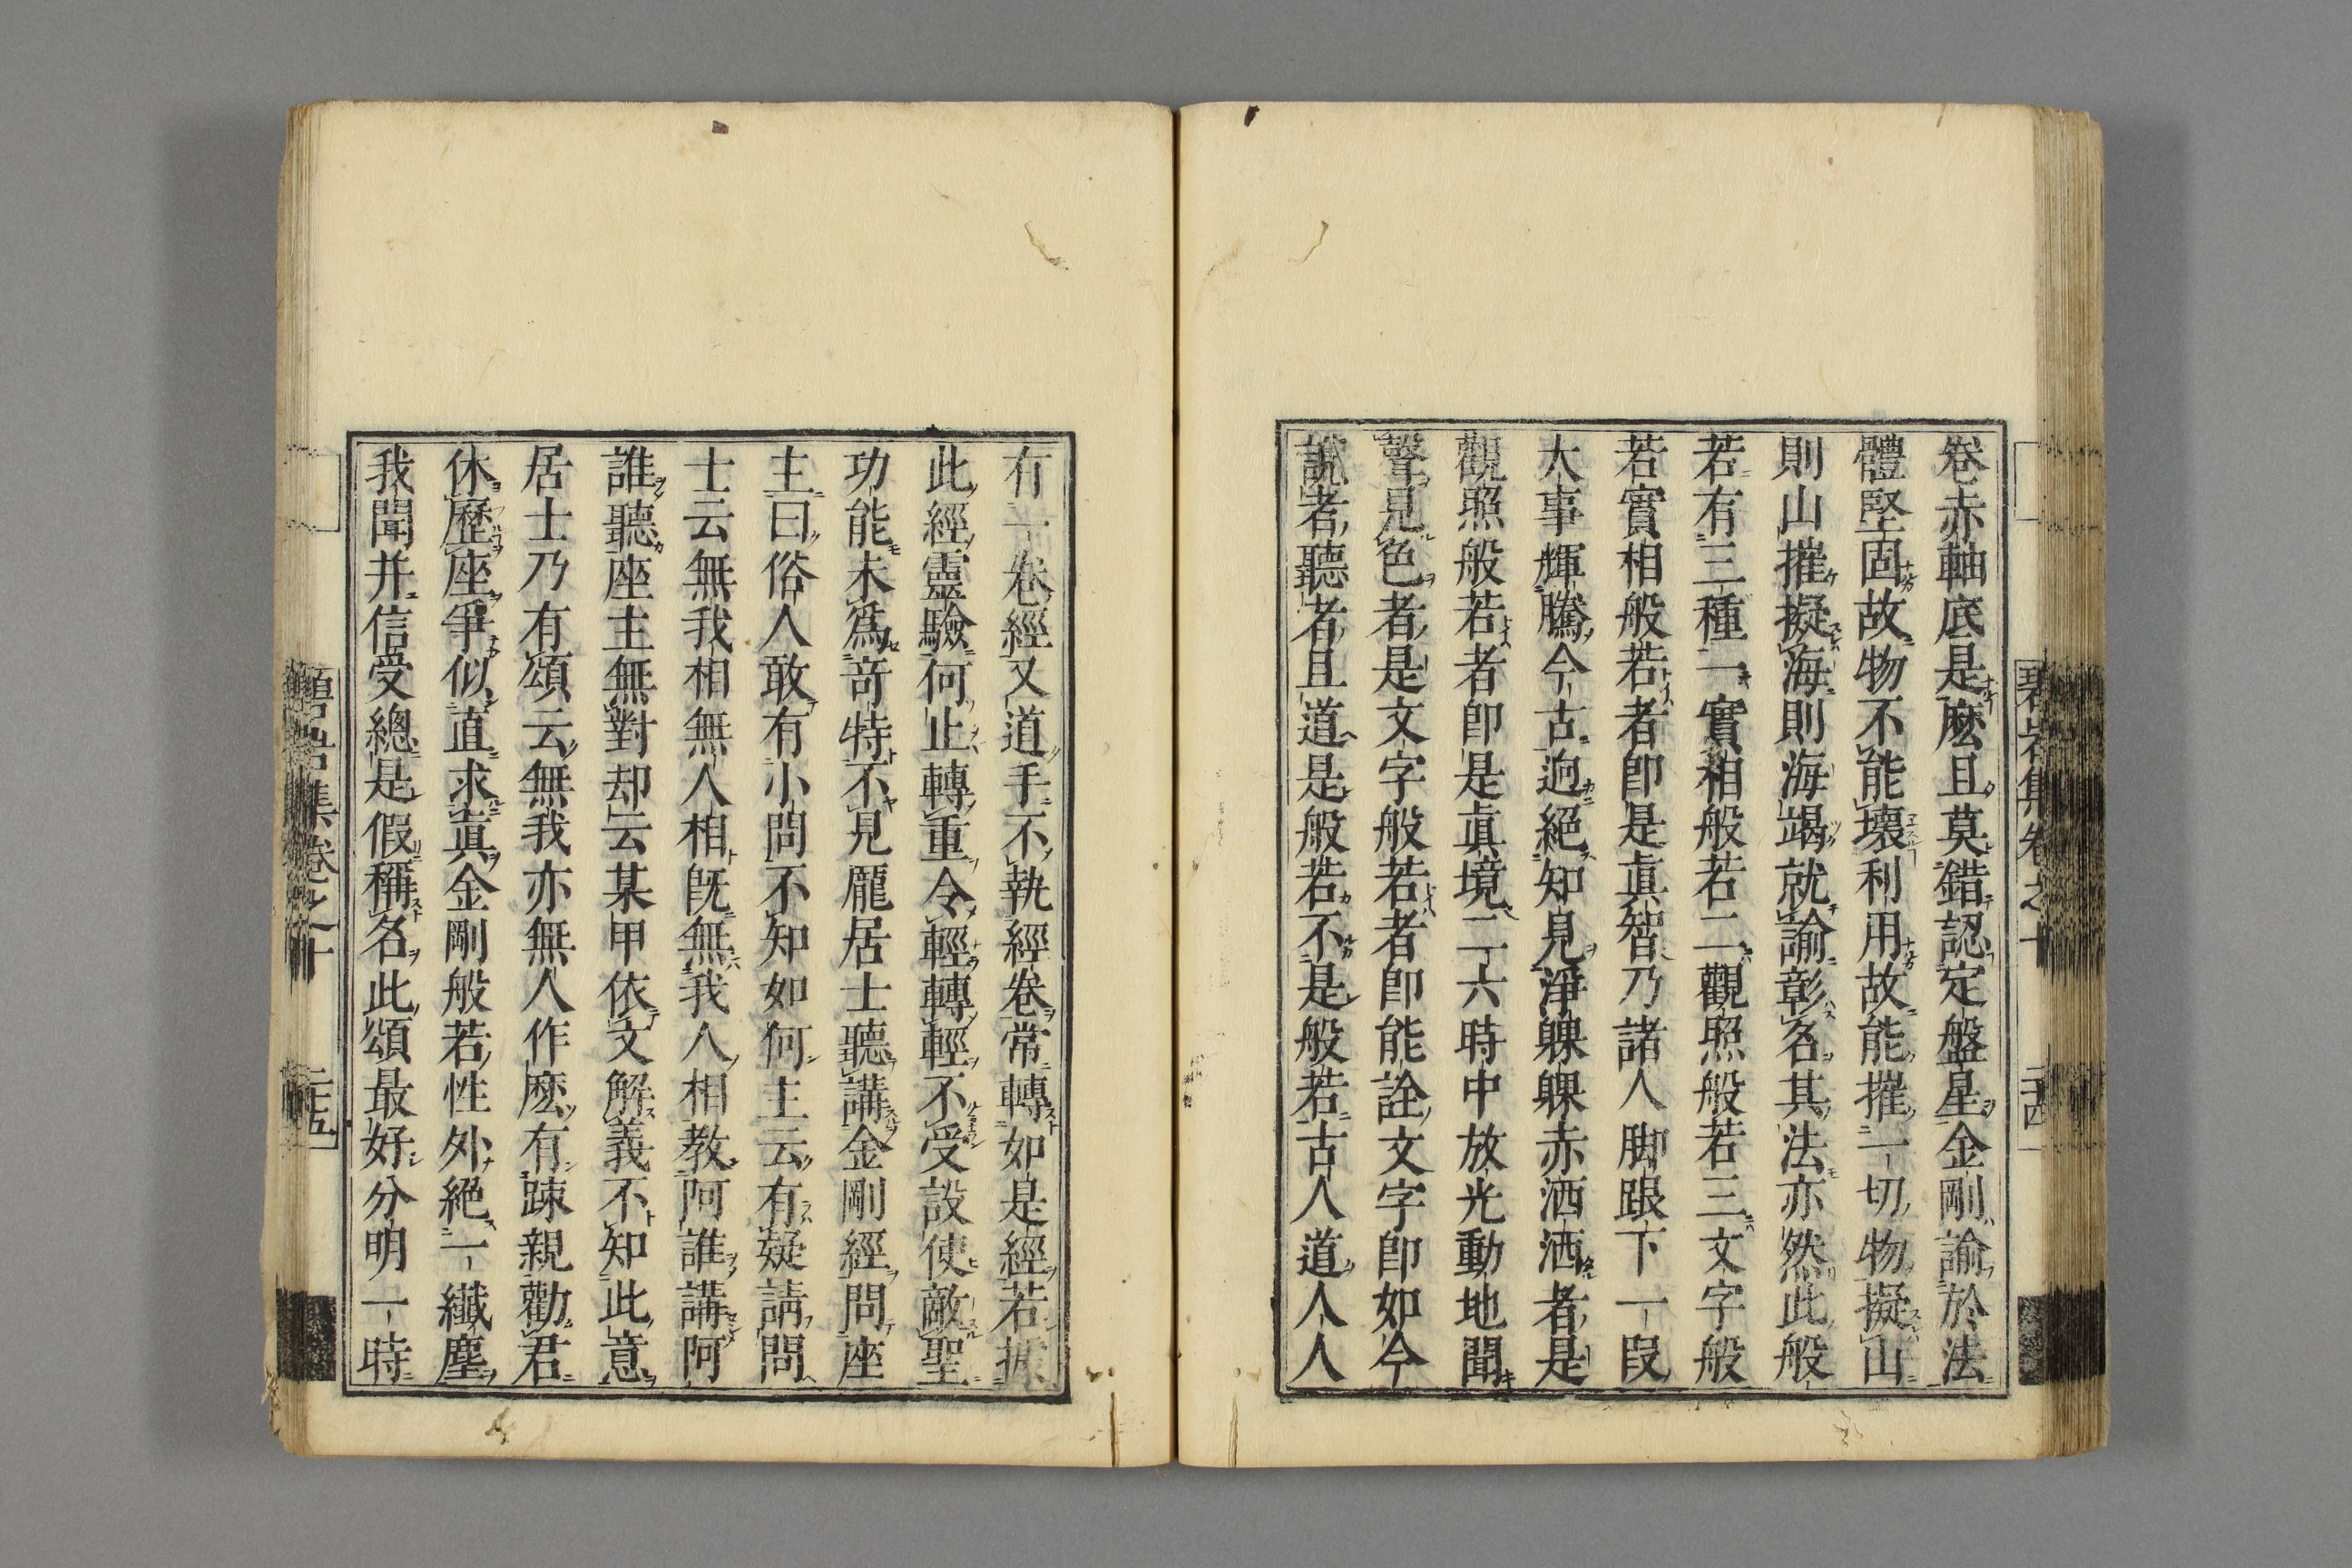 卷赤軸底是麽且莫錯認定盤星金剛諭於法
體堅固故物不能壞利用故能摧一切物擬山
則山摧擬海則海竭就諭彰名其法亦然此般
若有三種一實相般若二觀照般若三文字般
若實相般若者卽是眞智乃諸人脚跟下一段
大事輝騰今古逈絕知見淨躶躶赤洒洒者是
觀照般若者卽是眞境二六時中放光動地聞
聲見色者是文字般若者卽能詮文字卽如今
說者聽者且道是般若不是般若古人道人人
碧岩集卷之十
二十四
有一卷經又道手不執經卷常轉如是經若據
此經靈驗何止轉重令輕轉輕不受設使敵聖
功能未爲竒特不見龐居士聽講金剛經問座
主曰俗人敢有小問不知如何主云有疑請問
士云無我相無人相旣無我人相教阿誰講阿
誰聽座主無對却云某甲依文解義不知此意
居士乃有頌云無我亦無人作麽有踈親勸君
休歷座爭似直求眞金剛般若性外絕一纖塵
我聞并信受總是假稱名此頌最好分明一時
碧岩集卷之十
二十五